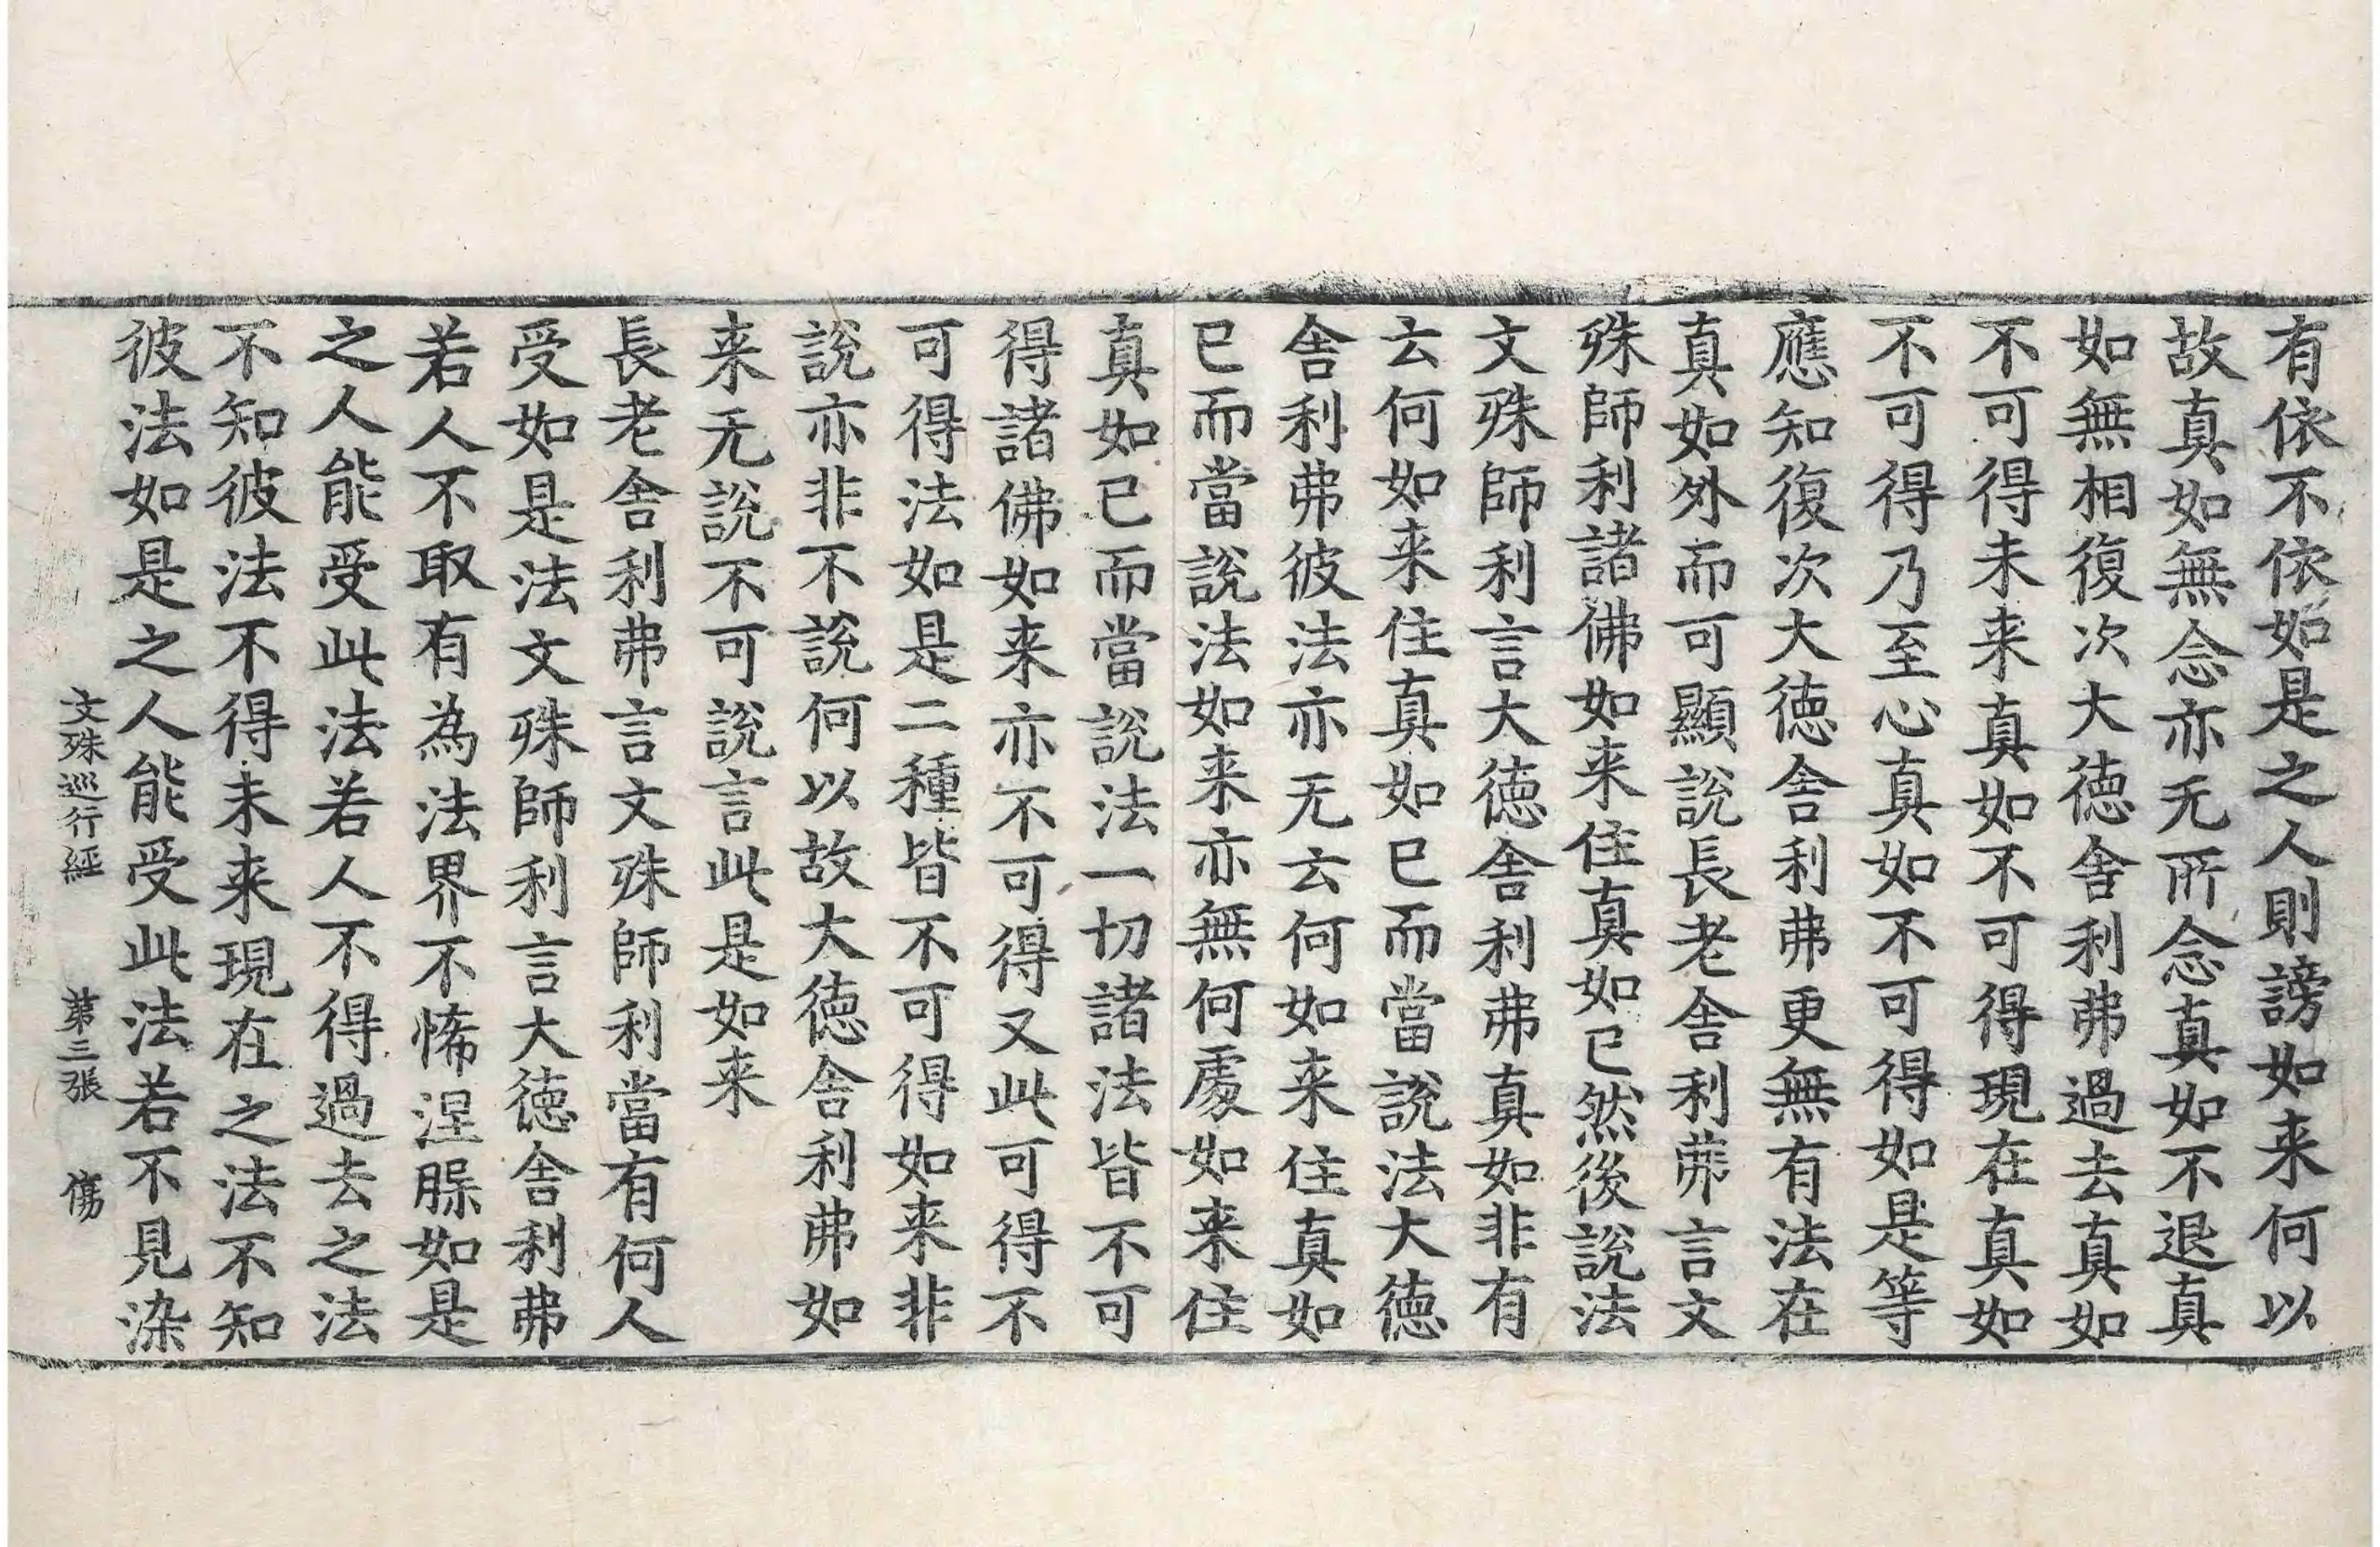 有依不依如是之人則謗如来何以
故真如無念亦无所念真如不退真
如無相復次大徳舎利弗過去真如
不可得未来真如不可得現在真如
不可得乃至心真如不可得如是等
應知復次大徳舎利弗更無有法在
真如外而可顯說長老舎利弗言文
殊師利諸佛如来住真如已然後說法
文殊師利言大徳舎利弗真如非有
云何如来住真如已而當說法大徳
舎利弗彼法亦无云何如来住真如
已而當說法如来亦無何處如来住
真如已而當說法一切諸法皆不可
得諸佛如来亦不可得又此可得不
可得法如是二種皆不可得如来非
說亦非不說何以故大徳舎利弗如
来无說不可說言此是如来
長老舎利弗言文殊師利當有何人
受如是法文殊師利言大徳舎利弗
若人不取有為法界不悕涅槃如是
之人能受此法若人不得過去之法
不知彼法不得未来現在之法不知
彼法如是之人能受此法若不見染
文殊巡行經 第三張 傷